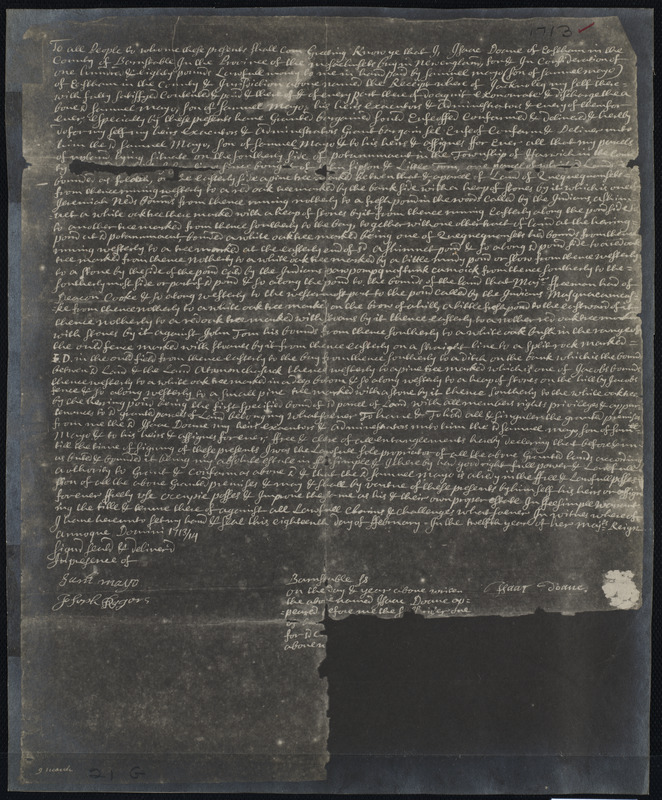 1713
To all People to whome these presents shall Com Greeting Know ye that I, Isaac Doane of Eastham in the
County of Barnstable In the Province of the Massachusetts bay in New england, for & In Consideration of
one hundred & eighty pounds Lawfull money to me in hand paid by Samuel mayo (son of Samuel mayo)
of Eastham in the County & Jurisdiction above named the Receipt whereof I acknowledg my self there =
with fully satisfyed Contented & paid & thereof & of every part thereof do acquit exonerate & discharge the above
bound Samuel mayo, son of Samuel Mayo his heirs executors & administrators & every of them for
ever especially by these presents have Granted bargained sould Enfeoffed Confirmed & delivered & hereby
do for my self my heirs executors & Administrators Grant bargain sel Enfeof Confirm & Deliver unto
him the sd Samuel Mayo, Son of Samuel Mayo & to his heirs & assignes for Ever all that my parcell
of upland lying & situate on the Southerly side of Potanumaut in the Township of Harwich
by
bounds as followeth, the easterly side a pine tree marked between that & a parcel of Land of Quequequansetts &
from thence runing westerly to a red oak tree marked by the bank side with a heap of stones by it which is one of
Jeremiah Neds bounds from thence runing northerly to a fresh pond in the woods Called by the Indians
at a white oak tree there marked with a heap of stones by it from thence runing Easterly along the pond side
to another tree marked from thence southerly to the bay together with another tract of land at the herring
pond at sd potanumaut bounded a white oak tree marked being one of Quequequansetts bounds from thence
runing westerly to a tree marked at the easterly end of sd ashimuit pond & so along sd pond side to a red oak
tree marked from thence northerly to a white oak tree marked by a little sandy pond or slow from thence westerly
to a stone by the side of the pond Cald by the Indians from thence southerly to the =
southermost side or part of sd pond & so along the pond to the bounds of the land that Majr ffreeman had of
Deacon Cooke & so along westerly to the westermost part to the pond called by the Indians
from thence northerly to a white oak tree marked on the brow of a hill a little fresh pond to the eastward of it
thence northerly to a red oak tree marked with stones by it thence easterly to another red oak tree marked
with stones by it against John Tom his bounds from thence southerly to a white oak bush in the range of
the ould fence marked with stones by it from thence easterly on a straight line to a split rock marked =
I: D. in the ould field from thence easterly to the bay from thence southerly to a ditch on the bank which is the bounds
between sd Land & the Land thence westerly to a pine tree marked which is one of Jacobs bounds
thence westerly to a white oak tree marked in a deep bottom & so along westerly to a heap of stones on the hill by Jacobs
fence & so along westerly to a small pine tree marked with a stone by it thence southerly to the white oak tree
by the herring pond being the first specified bound of sd tract of Land with all
tenances to sd granted parcel of Land belonging whatsoever. To have & To hold all & singular the granted premises
from me the sd Isaac Doane my heirs executors & administrators unto him the sd Samuel mayo son of Samll
Mayo & to his heirs & assigns for ever, ffree & clere of all entanglements hereby declaring that before &
til the time of signing of these presents I was the Lawfull sole proprietor of all the above Granted land
as butted & bounded & had in my absolute estate in ffee simple & thereby had good right full power & Lawfull
authority to Grant & Confirm as above sd & that the sd Samuel mayo is already in the ffree & Lawfull posses
sion of all the above Granted premises & may & shall by vertue of these presents by himself his heirs or assigns
forever ffreely use occupie posses & Improve the same as his & their own proper estate of ffee simple
ing the title & tenure thereof against all Lawfull Claims & challenges what soever In witnes whereof
I have hereunto set my hand & seal this eighteenth day of ffebruary In the twelfth year of her majts Reign
Annoque Domini 1713/14
Signd Seald & deliverd
In presence of
Saml mayo
Joseph Rogers
Isaac Doane
Barnstable ss
on the day & year above writen
the above named Isaac Doane ap=
=peared before me the
for sd C
aboven
21 G